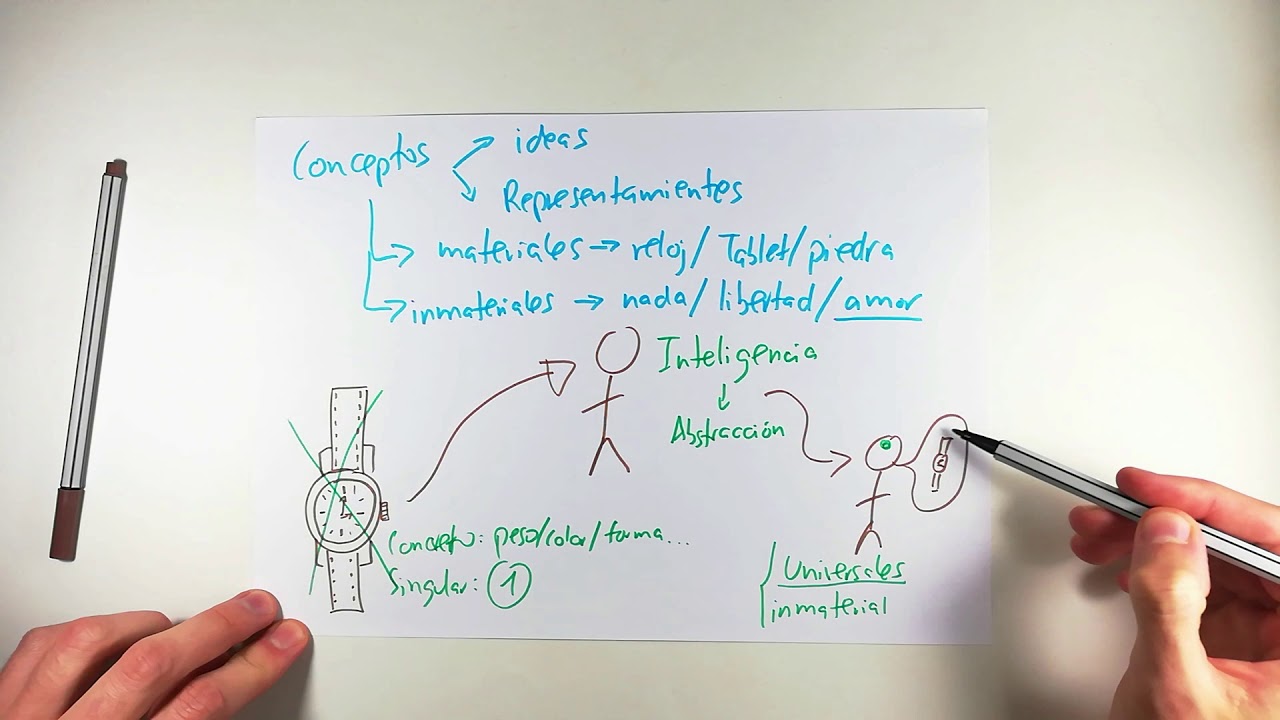 Conceptos
ideas
Representamientes
materiales → reloj/ Tablet/piedra
inmateriales → nada/ libertad/ amor
Inteligencia
↓
Abstracción
Concepto: peso/color/forma...
Singular: 1
Universales
inmaterial